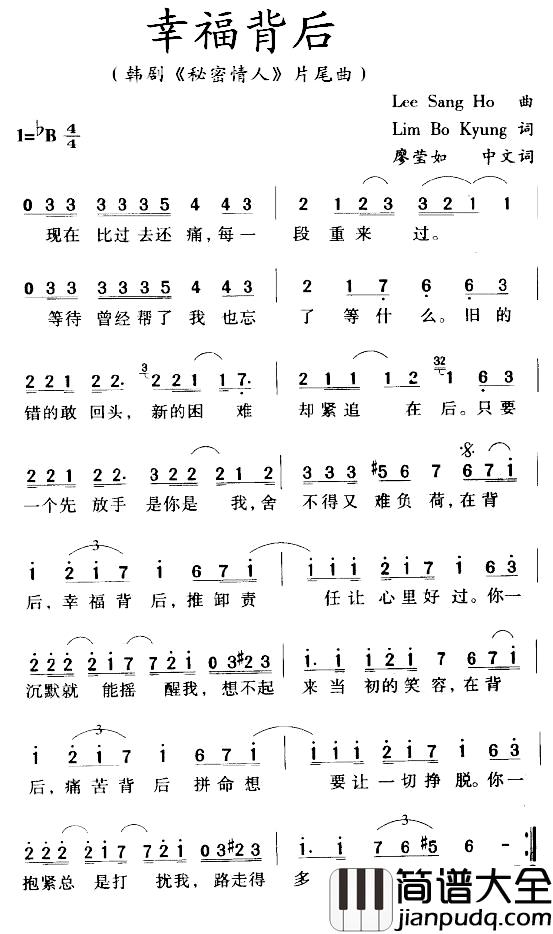 幸福背后
(韩剧《秘密情人》片尾曲)
Lee Sang Ho 曲
1=♭B 4/4
Lim Bo Kyung 词
廖莹如 中文词
0 3 3 3 3 3 5 4 4 3 | 2 1 2 3 3 2 1 1
现在 比过去还痛,每一 段重来 过。
0 3 3 3 3 3 5 4 4 3 | 2 1 7 6 6 3
等待 曾经帮了我也忘 了等什么。旧的
2 2 1 2 2. 3 2 2 1 1 7. | 2 1 1 1 2 32 1 6 3
错的敢 回头, 新的困 难 却紧追 在 后。只要
2 2 1 2 2. 3 2 2 2 1 2 | 3 3 3 #5 6 7 6 7 1
一个先 放手 是你是 我,舍 不得又 难负荷,在背
3
1 2 1 7 1 6 7 1 | 1 1 1 2 1 7 1 6 3
后,幸福背后,推卸责 任让 心里好过。你一
2 2 2 2 1 7 7 2 1 0 3 #2 3 | 1. 1 1 2 1 7 6 7 1
沉默就 能摇 醒我,想不起 来当 初的笑容,在背
3
1 2 1 7 1 6 7 1 | 1 1 1 2 1 7 1 6 3
后,痛苦背后 拼命想 要让一切挣脱。你一
2 2 2 2 1 7 7 2 1 0 3 #2 3 | 1 - 7 6 #5 6 - :
3
抱紧总 是打 扰我,路走得 多
简谱大全
jianpudq.com